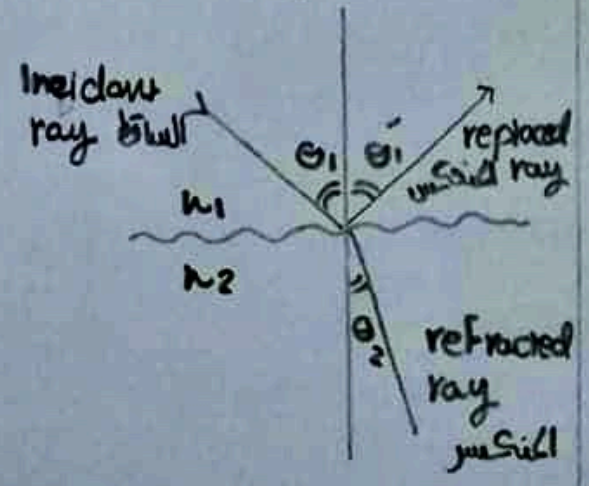 Incidant
ray الساقط
θ1 θ1'
replaced
ray المنعكس
n1
n2
θ2
refracted
ray
المنكسر